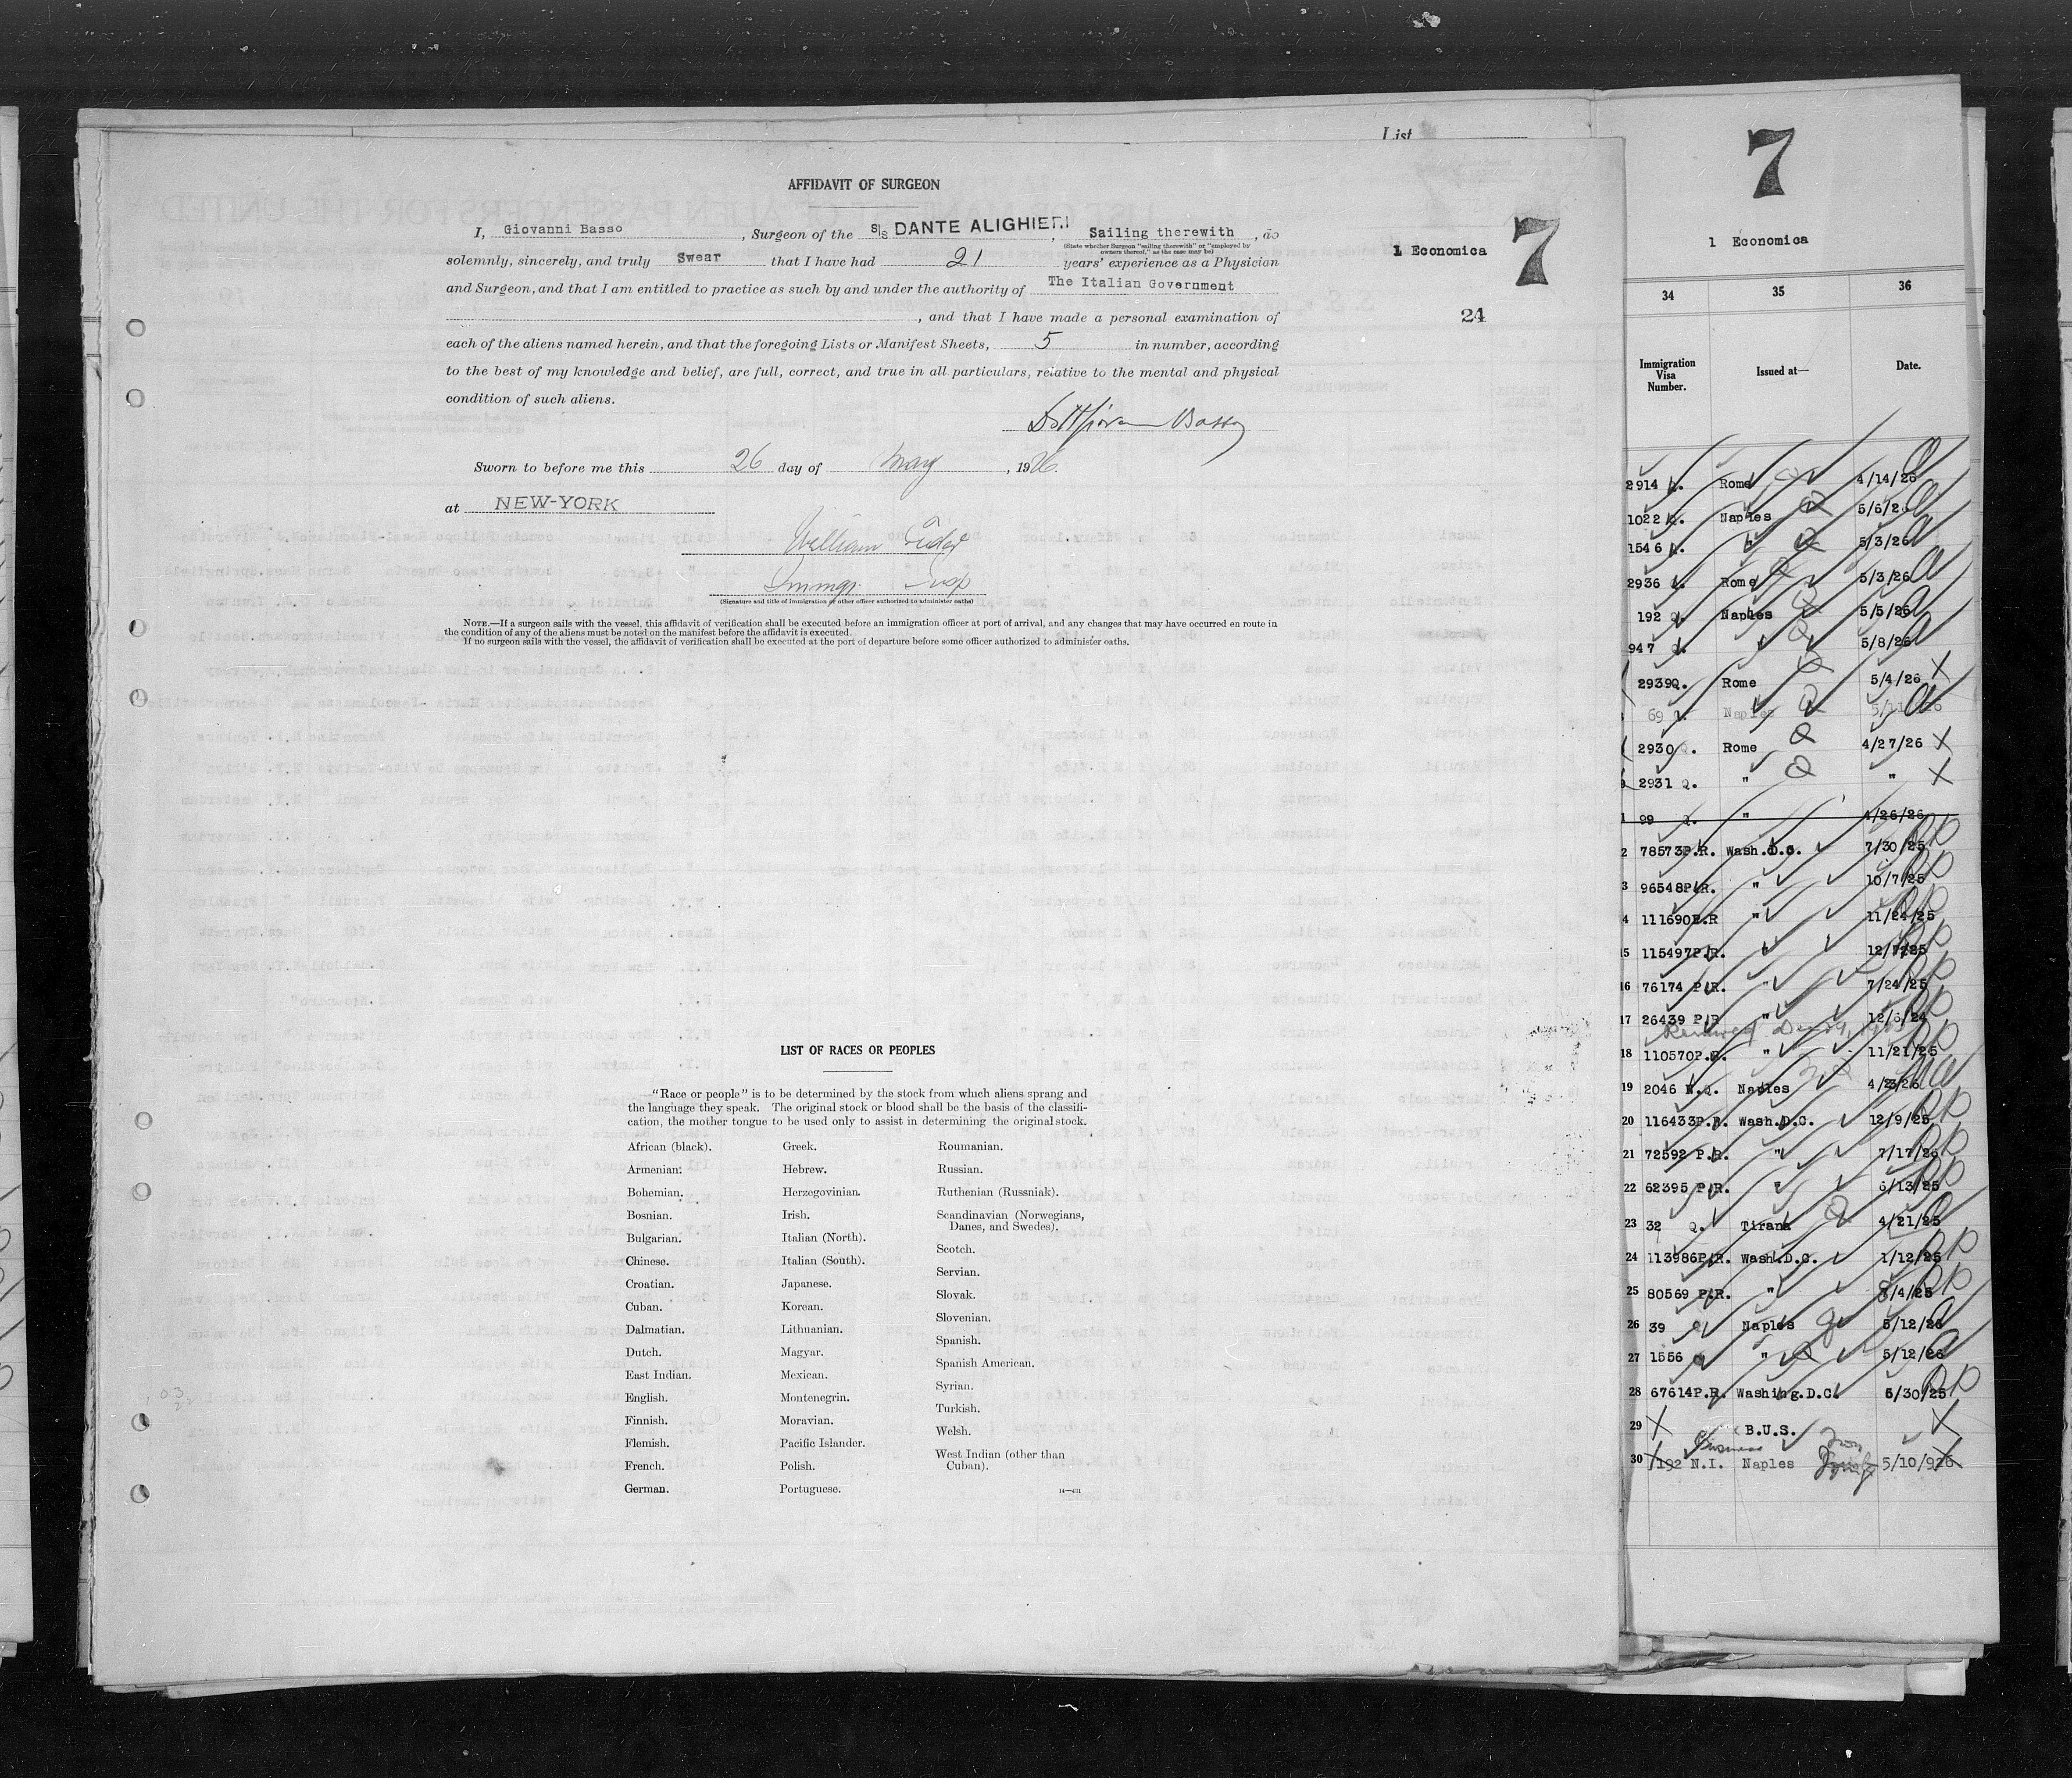 List
AFFIDAVIT OF SURGEON
I, Giovanni Basso, Surgeon of the S/S DANTE ALIGHIERI, Sailing therewith, do
(State whether Surgeon "sailing therewith" or "employed by
owners thereof," as the case may be)
solemnly, sincerely, and truly Swear that I have had 21 years' experience as a Physician
and Surgeon, and that I am entitled to practice as such by and under the authority of The Italian Government
, and that I have made a personal examination of
each of the aliens named herein, and that the foregoing Lists or Manifest Sheets, 5 in number, according
to the best of my knowledge and belief, are full, correct, and true in all particulars, relative to the mental and physical
condition of such aliens.
Basso
Sworn to before me this 26 day of May, 1926.
at NEW-YORK
William
Immgr. Insp
(Signature and title of Immigration or other officer authorized to administer oaths)
NOTE.—If a surgeon sails with the vessel, this affidavit of verification shall be executed before an immigration officer at port of arrival, and any changes that may have occurred en route in
the condition of any of the aliens must be noted on the manifest before the affidavit is executed.
If no surgeon sails with the vessel, the affidavit of verification shall be executed at the port of departure before some officer authorized to administer oaths.
1 Economica 7
24
LIST OF RACES OR PEOPLES
"Race or people" is to be determined by the stock from which aliens sprang and
the language they speak. The original stock or blood shall be the basis of the classifi-
cation, the mother tongue to be used only to assist in determining the original stock.
African (black).
Armenian.
Bohemian.
Bosnian.
Bulgarian.
Chinese.
Croatian.
Cuban.
Dalmatian.
Dutch.
East Indian.
English.
Finnish.
Flemish.
French.
German.
Greek.
Hebrew.
Herzegovinian.
Irish.
Italian (North).
Italian (South).
Japanese.
Korean.
Lithuanian.
Magyar.
Mexican.
Montenegrin.
Moravian.
Pacific Islander.
Polish.
Portuguese.
Roumanian.
Russian.
Ruthenian (Russniak).
Scandinavian (Norwegians,
Danes, and Swedes).
Scotch.
Servian.
Slovak.
Slovenian.
Spanish.
Spanish American.
Syrian.
Turkish.
Welsh.
West Indian (other than
Cuban).
7
1 Economica
34 35 36
Immigration
Visa
Number.
Issued at—
Date.
2914 Q. Rome Q 4/14/26
1022 Q. Naples Q 5/6/26
1546 Q. " Q 5/3/26
2936 Q. Rome Q 5/3/26
192 Q. Naples Q 5/5/26
947 Q. " Q 5/8/26
2939Q. Rome Q 5/4/26 X
69 Q. Naples Q 5/11/926
2930 Q. Rome Q 4/27/26 X
2931 Q. " Q " X
99 Q. " 4/26/26
2 78573P.R. Wash.D.C. 7/30/25
3 96548P.R. " 10/7/25
4 111690P.R " 11/24/25
15 115497P.R. " 12/7/25
16 76174 P.R. " 7/24/25
17 26439 P.R " 12/6/24
18 110570P.R. " 11/21/25
19 2046 N.Q. Naples 4/23/26
20 116433P.R. Wash.D.C. 12/9/25
21 72592 P.R. " 7/17/26
22 62395 P.R. " 6/13/25
23 32 Q. Tirana Q 4/21/25
24 113986P.R. Wash.D.C. 1/12/25
25 80569 P.R. " 8/4/25
26 39 Q Naples Q 5/12/26
27 1556 Q " Q 5/12/26
28 67614P.R. Washing.D.C. 5/30/25
29 X B.U.S. X
Business
30 192 N.I. Naples 5/10/926